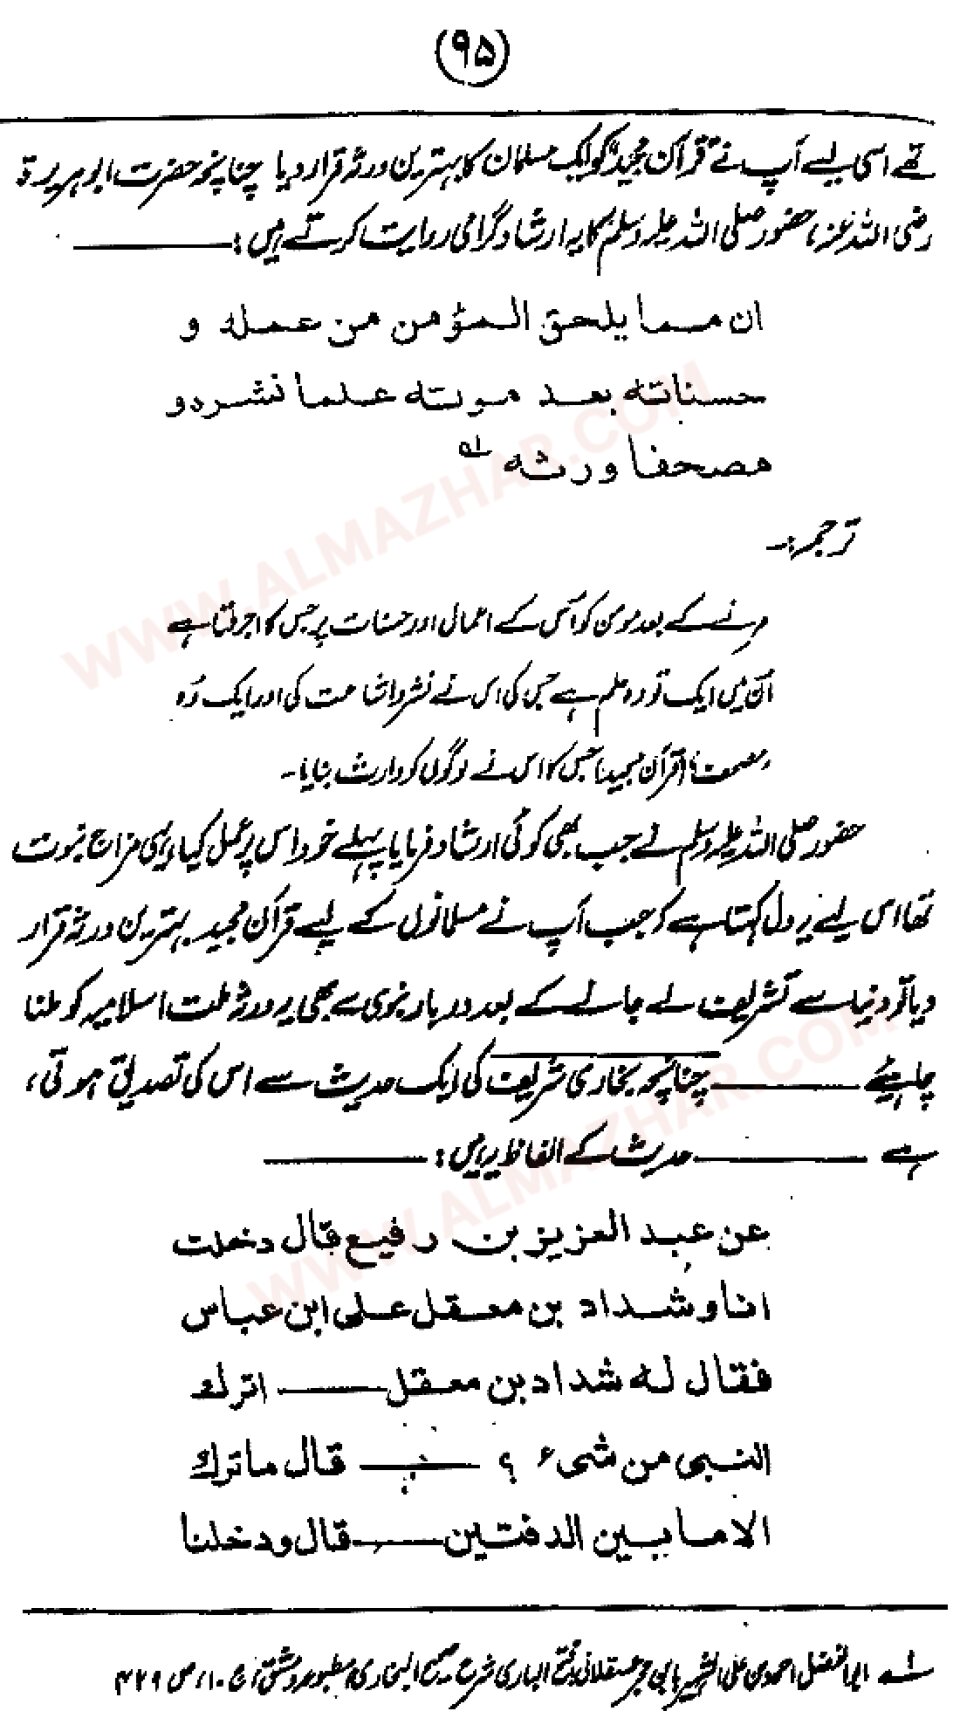 (۹۵)
تھے اسی لیے آپ نے قرآن مجید کو ایک مسلمان کا بہترین ورثہ قرار دیا چنانچہ حضرت ابو ہریرۃ
رضی اللہ عنہ، حضور صلی اللہ علیہ وسلم کا یہ ارشاد گرامی روایت کرتے ہیں :
ان مما يلحق المؤمن من عمله و
حسناته بعد موته علما نشره و
مصحفا ورثه ؎۱
ترجمہ :۔
مرنے کے بعد مومن کو اُس کے اعمال اور حسنات پر جس کا اجر ملتا ہے
اُن میں ایک تو وہ علم ہے جس کی اس نے نشر و اشاعت کی اور ایک وہ
مصحف (قرآن مجید) جس کا اس نے لوگوں کو وارث بنایا۔
حضور صلی اللہ علیہ وسلم نے جب بھی کوئی ارشاد فرمایا پہلے خود اس پر عمل کیا، یہی مزاج نبوت
تھا اس لیے یہ دل کہتا ہے کہ جب آپ نے مسلمانوں کے لیے قرآن مجید بہترین ورثہ قرار
دیا تو دنیا سے تشریف لے جانے کے بعد دربار نبوی سے بھی یہ ورثہ ملت اسلامیہ کو ملنا
چاہیئے ——— چنانچہ بخاری شریف کی ایک حدیث سے اس کی تصدیق ہوتی،
ہے ——— حدیث کے الفاظ یہ ہیں :
عن عبد العزيز بن رفيع قال دخلت
انا و شداد بن معقل على ابن عباس
فقال له شداد بن معقل ——— اترك
النبى من شىء ؟ ——— قال ما ترك
الا ما بين الدفتين ——— قال و دخلنا
؎۱ ابو الفضل احمد بن علی الشہیر بابن حجر عسقلانی، فتح الباری شرح صحیح البخاری مطبوعہ دمشق، ج ۱۰، ص ۴۳۹
WWW.ALMAZHAR.COM
WWW.ALMAZHAR.COM